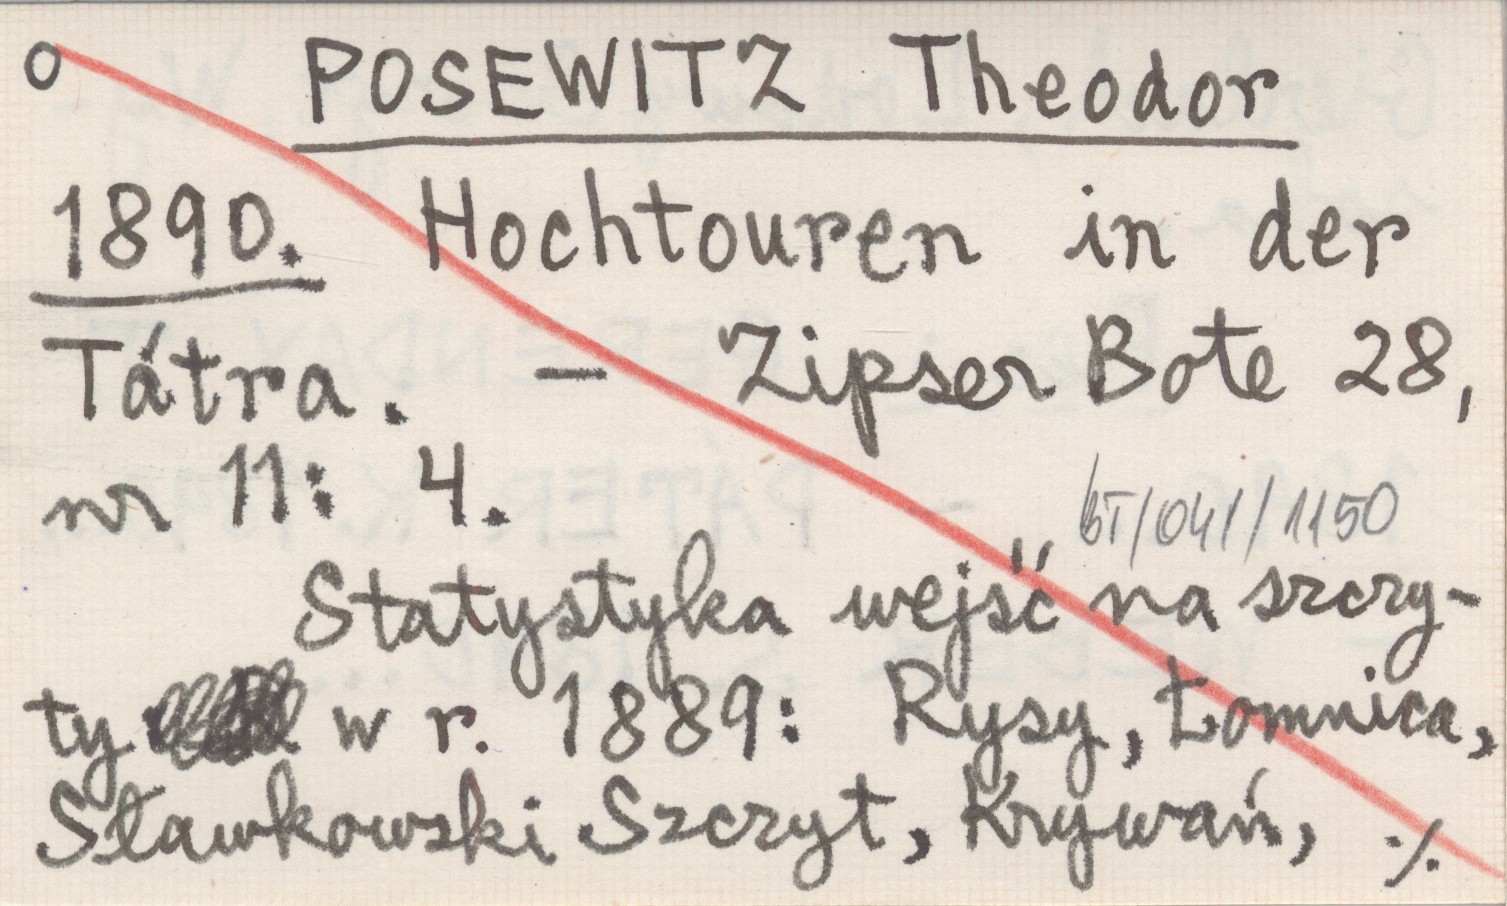 o POSEWITZ Theodor
1890. Hochtouren in der
Tátra. — Zipser Bote 28,
nr 11: 4.
bT/041/1150
Statystyka wejść na szczy-
ty w r. 1889: Rysy, Łomnica,
Sławkowski Szczyt, Krywań, ./.